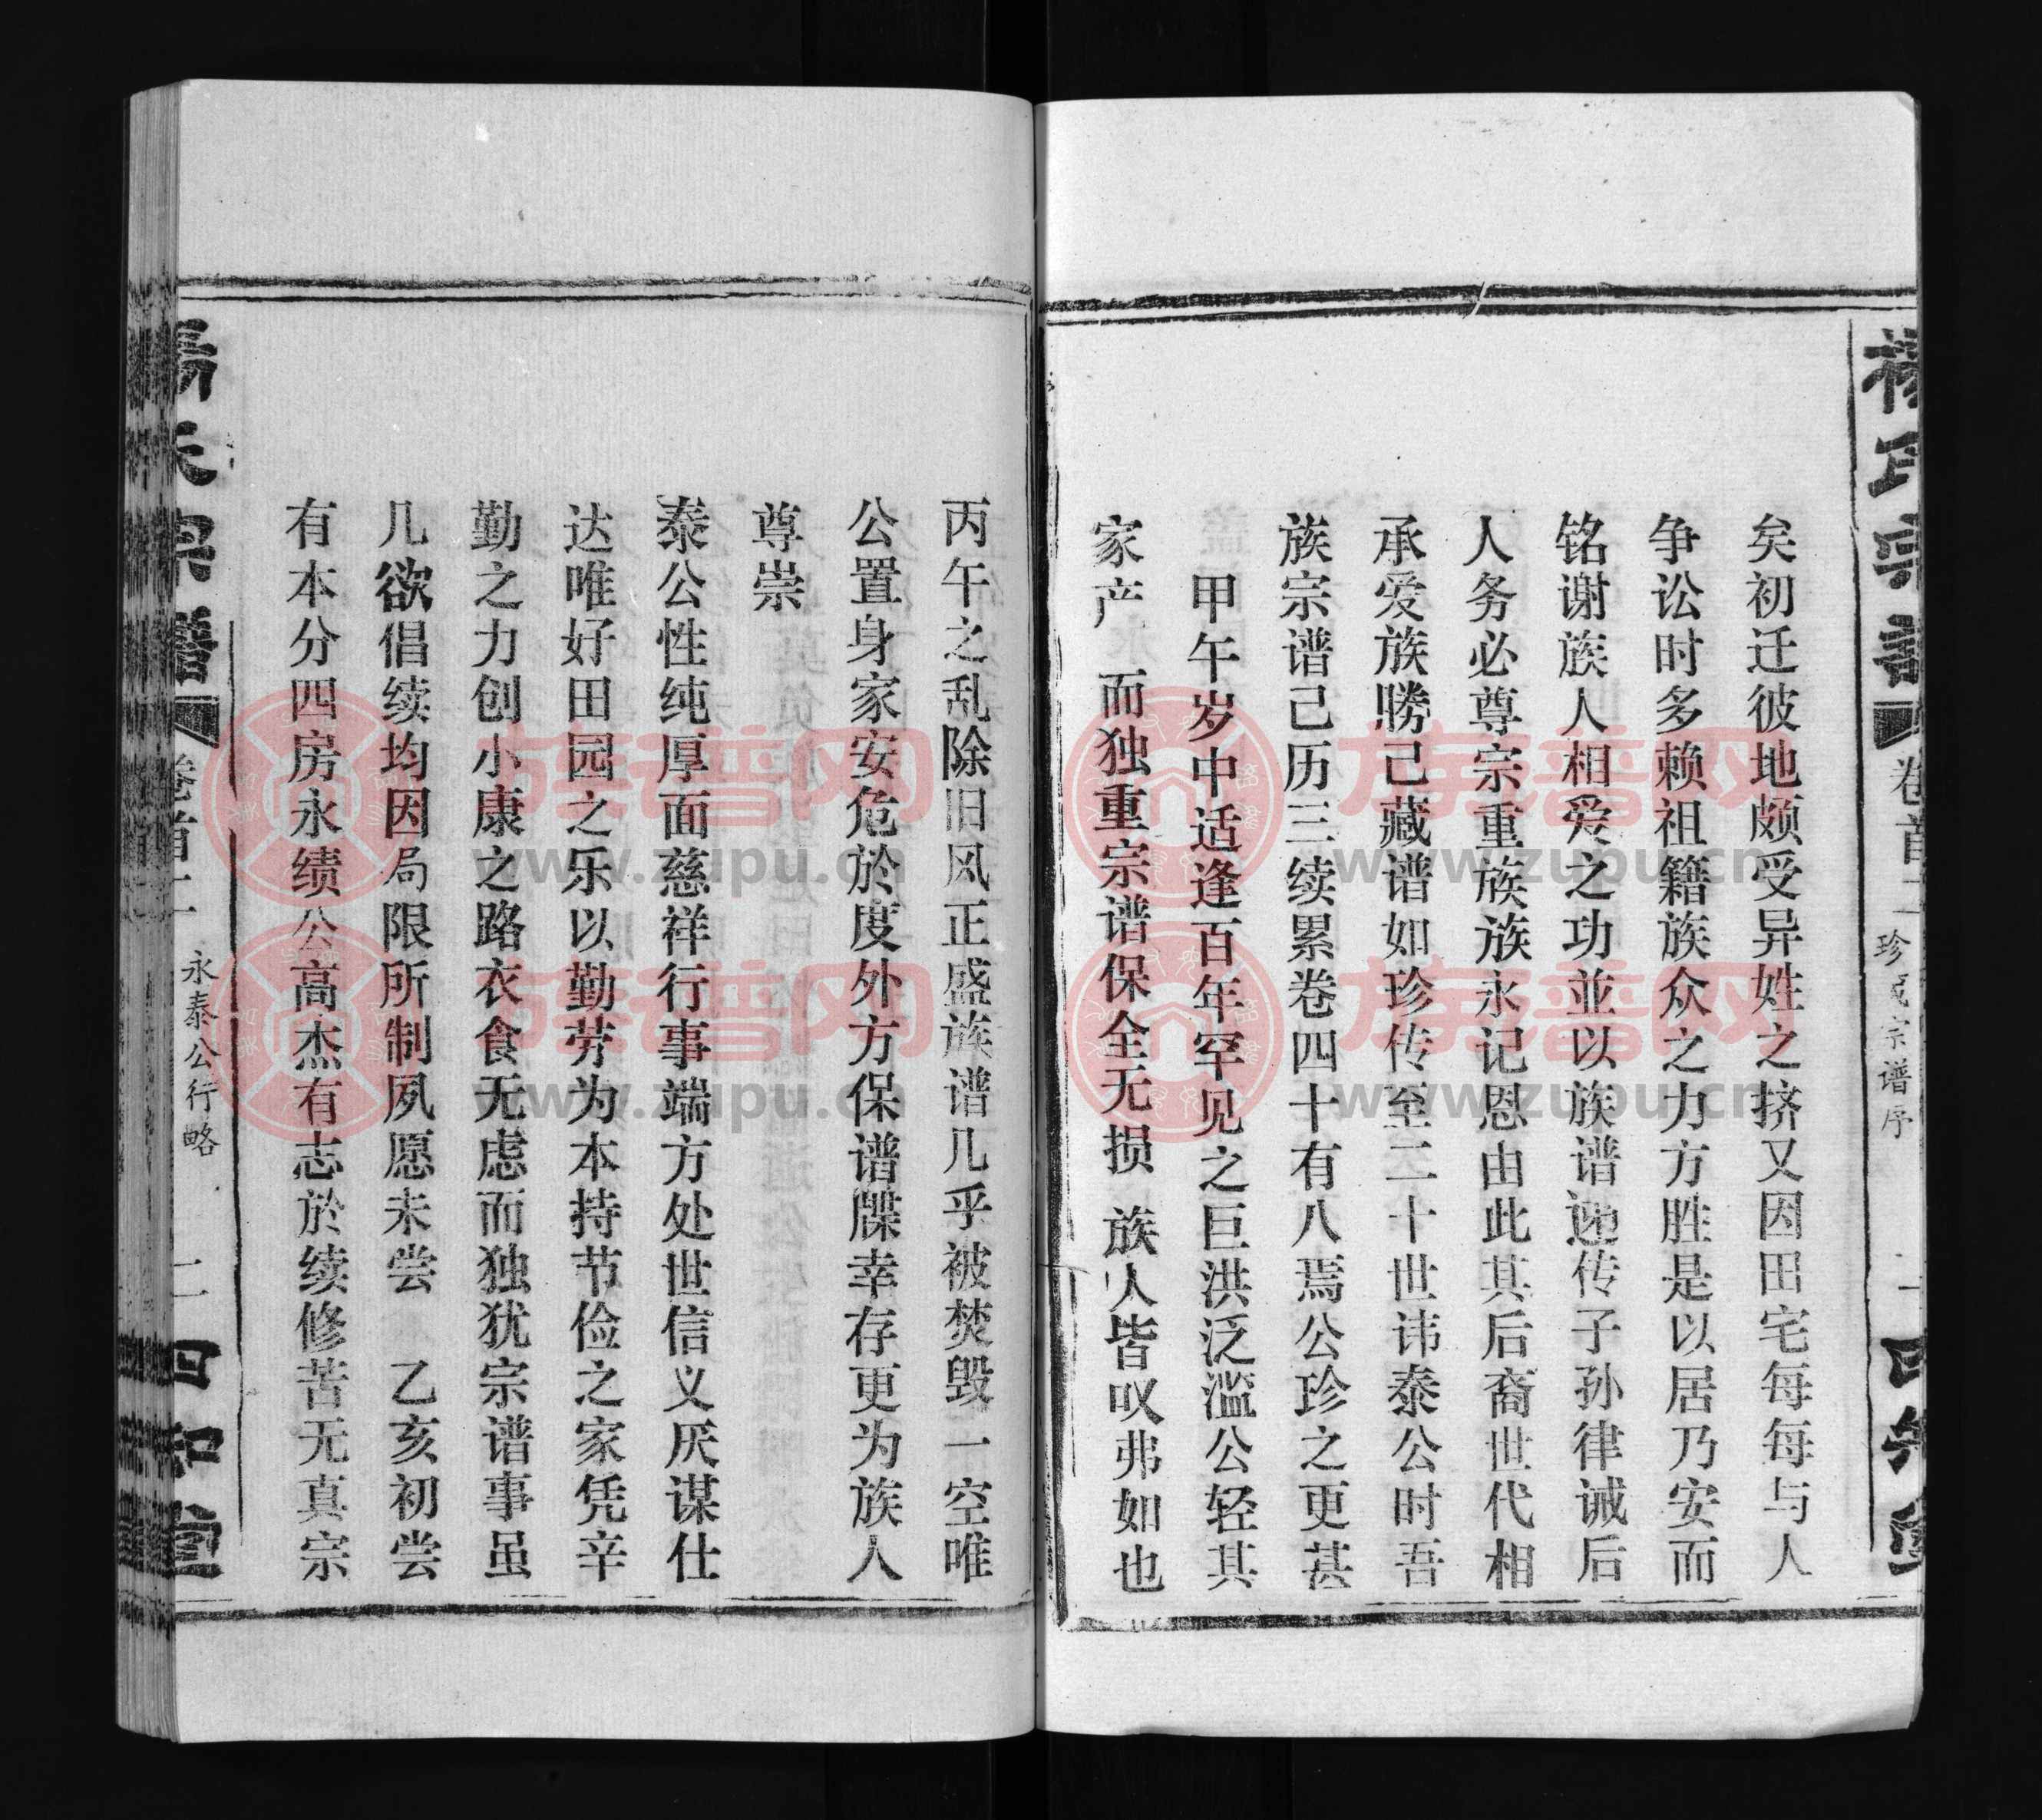 杨氏宗譜
卷首二
珍咸宗谱序
一
四知堂
矣初迁彼地颇受异姓之挤又因田宅每每与人
争讼时多赖祖籍族众之力方胜是以居乃安而
铭谢族人相爱之功並以族谱递传子孙律诫后
人务必尊宗重族族永记恩由此其后裔世代相
承爱族勝己藏谱如珍传至二十世讳泰公时吾
族宗谱己历三续累卷四十有八焉公珍之更甚
甲午岁中适逢百年罕见之巨洪泛滥公轻其
家产 而独重宗谱保全无损 族人皆叹弗如也
丙午之乱除旧风正盛族谱几乎被焚毁一空唯
公置身家安危於度外方保谱牒幸存更为族人
尊崇
泰公性纯厚面慈祥行事端方处世信义厌谋仕
达唯好田园之乐以勤劳为本持节俭之家凭辛
勤之力创小康之路衣食无虑而独犹宗谱事虽
几欲倡续均因局限所制夙愿未尝 乙亥初尝
有本分四房永绩公高杰有志於续修苦无真宗
楊氏宗譜
卷首二
永泰公行略
二
四知堂
族谱网
www.zupu.cn
族谱网
www.zupu.cn
族谱网
www.zupu.cn
族谱网
www.zupu.cn